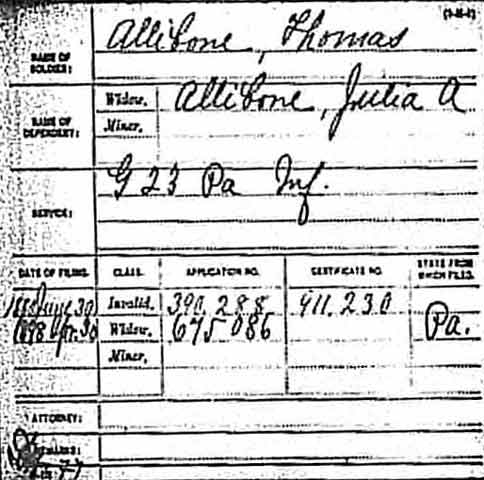 (3-8-6)
NAME OF SOLDIER: Allibone, Thomas
NAME OF DEPENDENT: Widow, Allibone, Julia A
Minor,
SERVICE: G 23 Pa Inf.
DATE OF FILING. CLASS. APPLICATION NO. CERTIFICATE NO. STATE FROM WHICH FILED.
June 30 Invalid, 390.288 911.230
1898 Apr. 30 Widow, 675 086 Pa.
Minor,
ATTORNEY:
REMARKS: